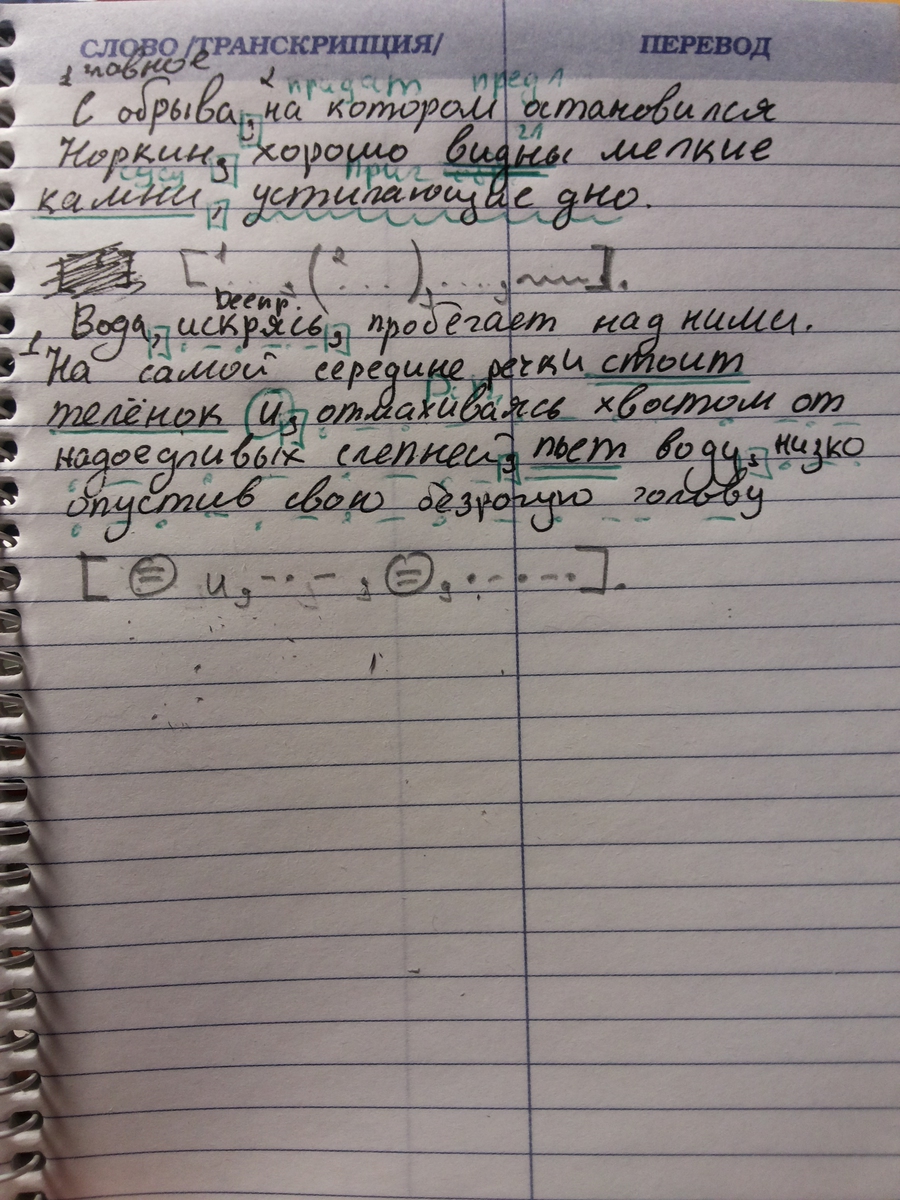 СЛОВО /ТРАНСКРИПЦИЯ/ ПЕРЕВОД
1 главное 2 придат предл
С обрыва, на котором остановился
гл
Норкин, хорошо видны мелкие
сущ прич
камни, устилающие дно.
[1 ...., (2 ....), ...., ~~~].
Деепр.
Вода, искрясь, пробегает над ними.
1 На самой середине речки стоит
телёнок и, отмахиваясь хвостом от
надоедливых слепней, пьет воду, низко
опустив свою безрогую голову
[ = и, -.-.-, =, -.-.-. ].